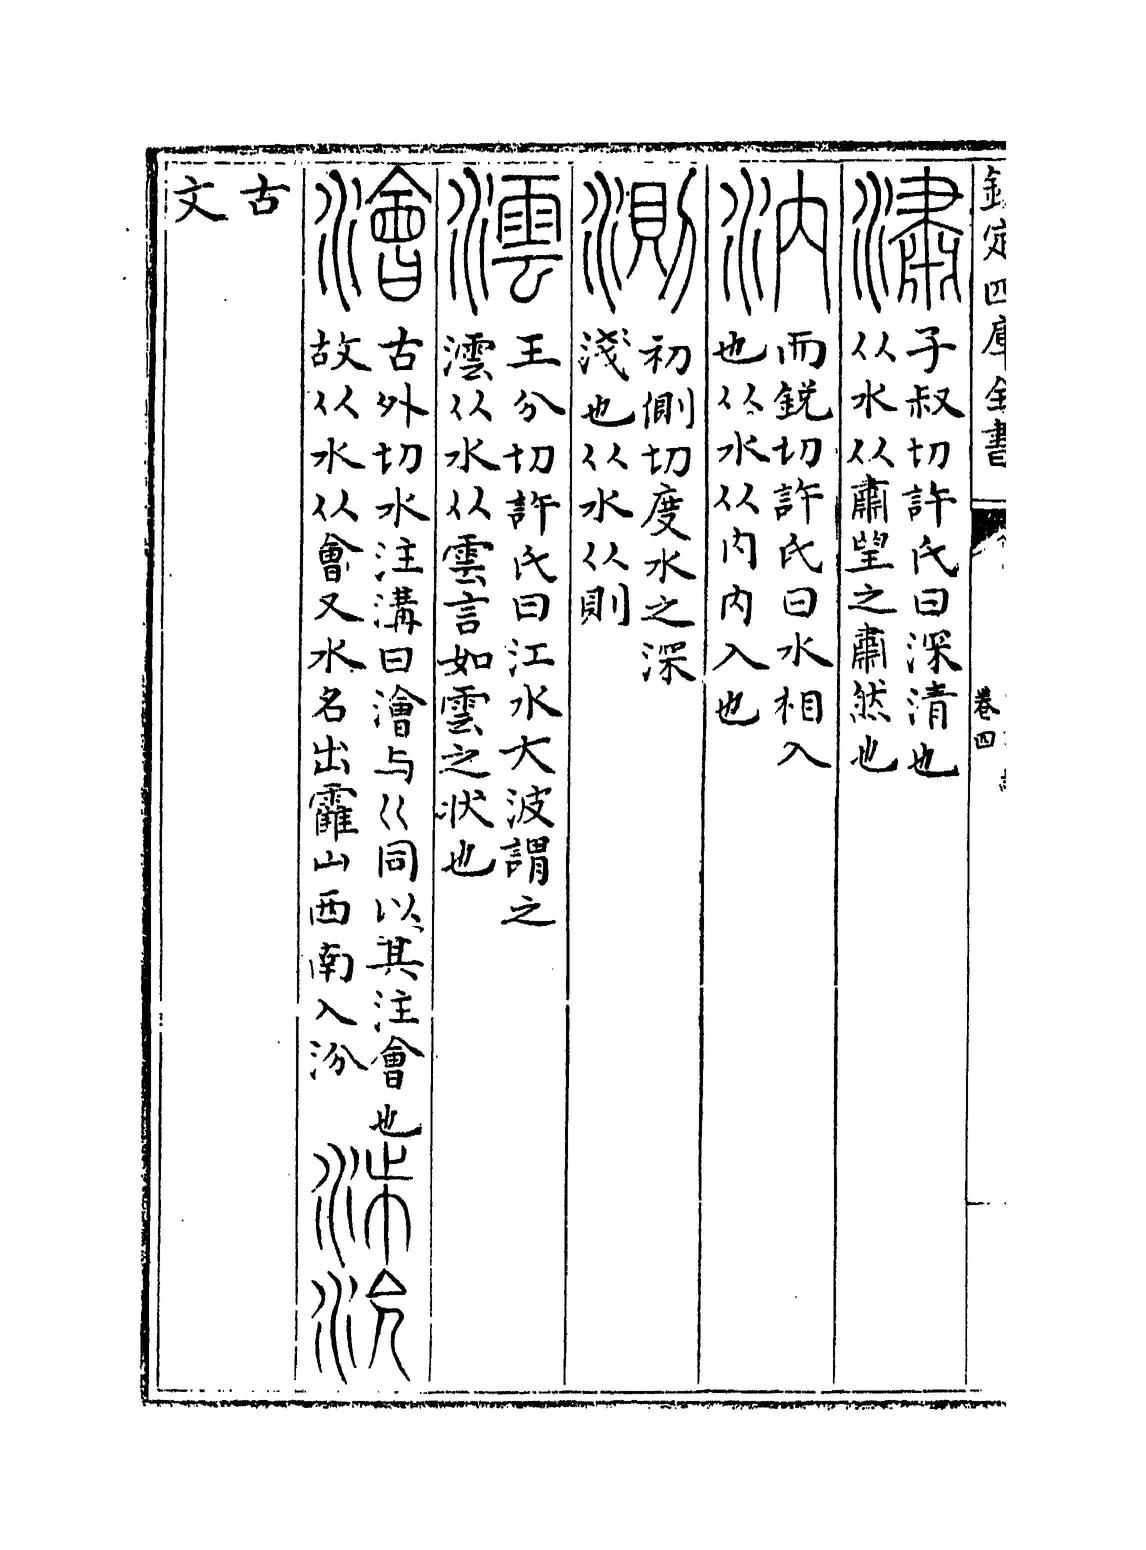 欽定四庫全書
卷四
潚
子叔切許氏曰深清也
从水从肅望之肅然也
汭
而銳切許氏曰水相入
也从水从内内入也
測
初側切度水之深
淺也从水从則
澐
王分切許氏曰江水大波謂之
澐从水从雲言如雲之狀也
澮
古外切水注溝曰澮与巜同以其注會也
故从水从會又水名出靃山西南入汾
古
文